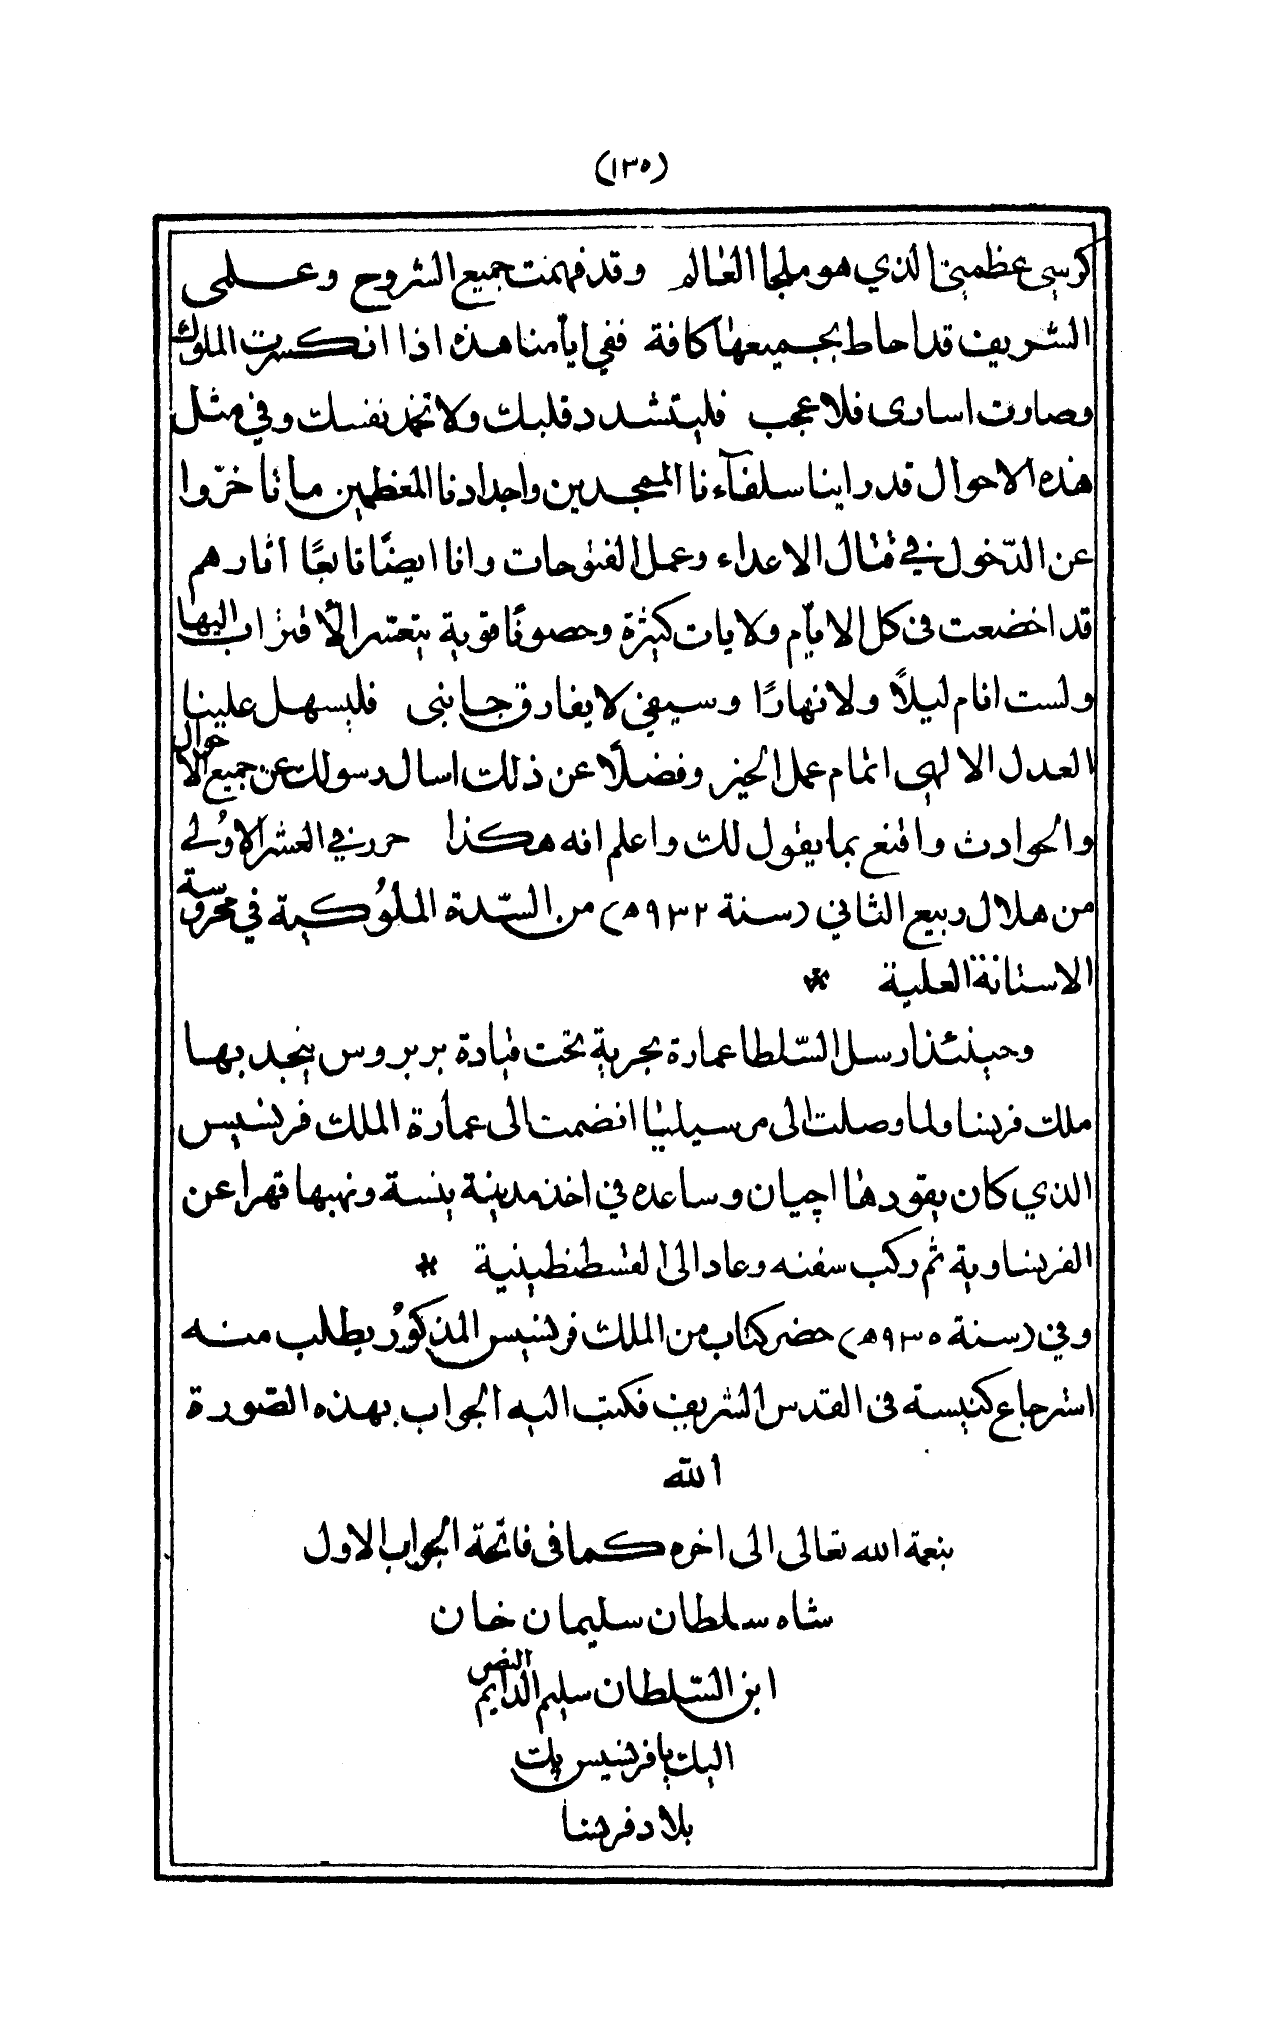 (١٣٥)
كرسى عظمتى الذي هو ملجا العالم وقد فهمت جميع الشروح وعلمى
الشريف قد احاط بجميعها كافة ففي ايامنا هذه اذا انكسرت الملوك
وصارت اسارى فلا عجب فليتشدد قلبك ولا تخمد نفسك وفي مثل
هذه الاحوال قد راينا سلفآءنا الممجدين واجدادنا المعظمين ما تأخرّوا
عن الدّخول في قتال الاعداء وعمل الفتوحات وانا ايضًا تابعًا اثارهم
قد اخضعت في كل الايّام ولايات كثيرة وحصونًا قوية يتعسر الاقتراب اليها
ولست انام ليلًا ولا نهارًا وسيفي لا يفارق جانبى فليسهل علينا
العدل الالهى اتمام عمل الخير وفضلًا عن ذلك اسال رسولك عن جميع الاحوال
والحوادث واقنع بما يقول لك واعلم انه هكذا حرر في العشر الاوُلى
من هلال ربيع الثاني (سنة ٩٣٢ ه‍) من السّدة الملوُكية في محروسة
الاستانة العلية *
وحينئذ ارسل السّلطا عمارة بحرية تحت قيادة بربروس ينجد بها
ملك فرنسا ولما وصلت الى مرسيليا انضمت الى عمارة الملك فرنسيس
الذي كان يقودها اچيان وساعده في اخذ مدينة ينسة ونهبها قهرا عن
الفرنساوية ثم ركب سفنه وعاد الى القسطنطينية *
وفي (سنة ٩٣٥ ه‍) حضر كتاب من الملك فرنسيس المذكوُر يطلب منه
استرجاع كنيسة في القدس الشريف فكتب اليه الجواب بهذه الصّورة
الله
بنعمة الله تعالى الى اخره كما فى فاتحة الجواب الاول
شاه سلطان سليمان خان
ابن السّلطان سليم الدايم النصر
اليك يا فرنسيس بك
بلاد فرنسا